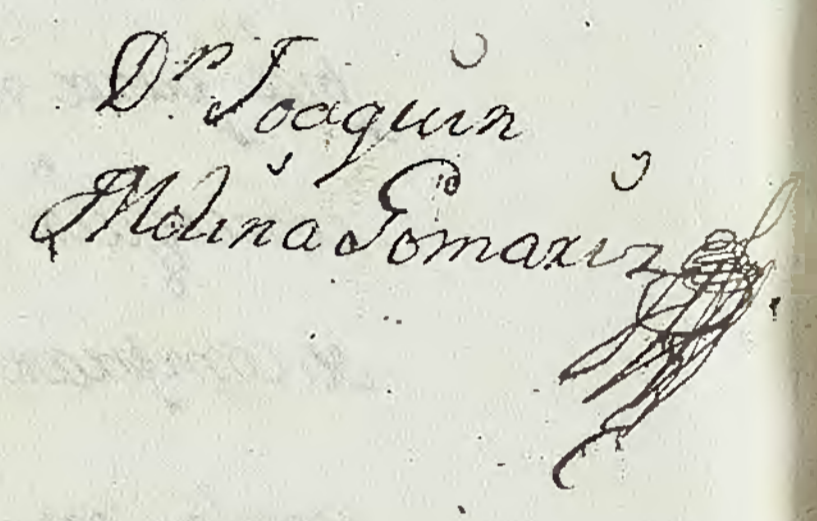 Dn Joaquin
Molina Gomariz